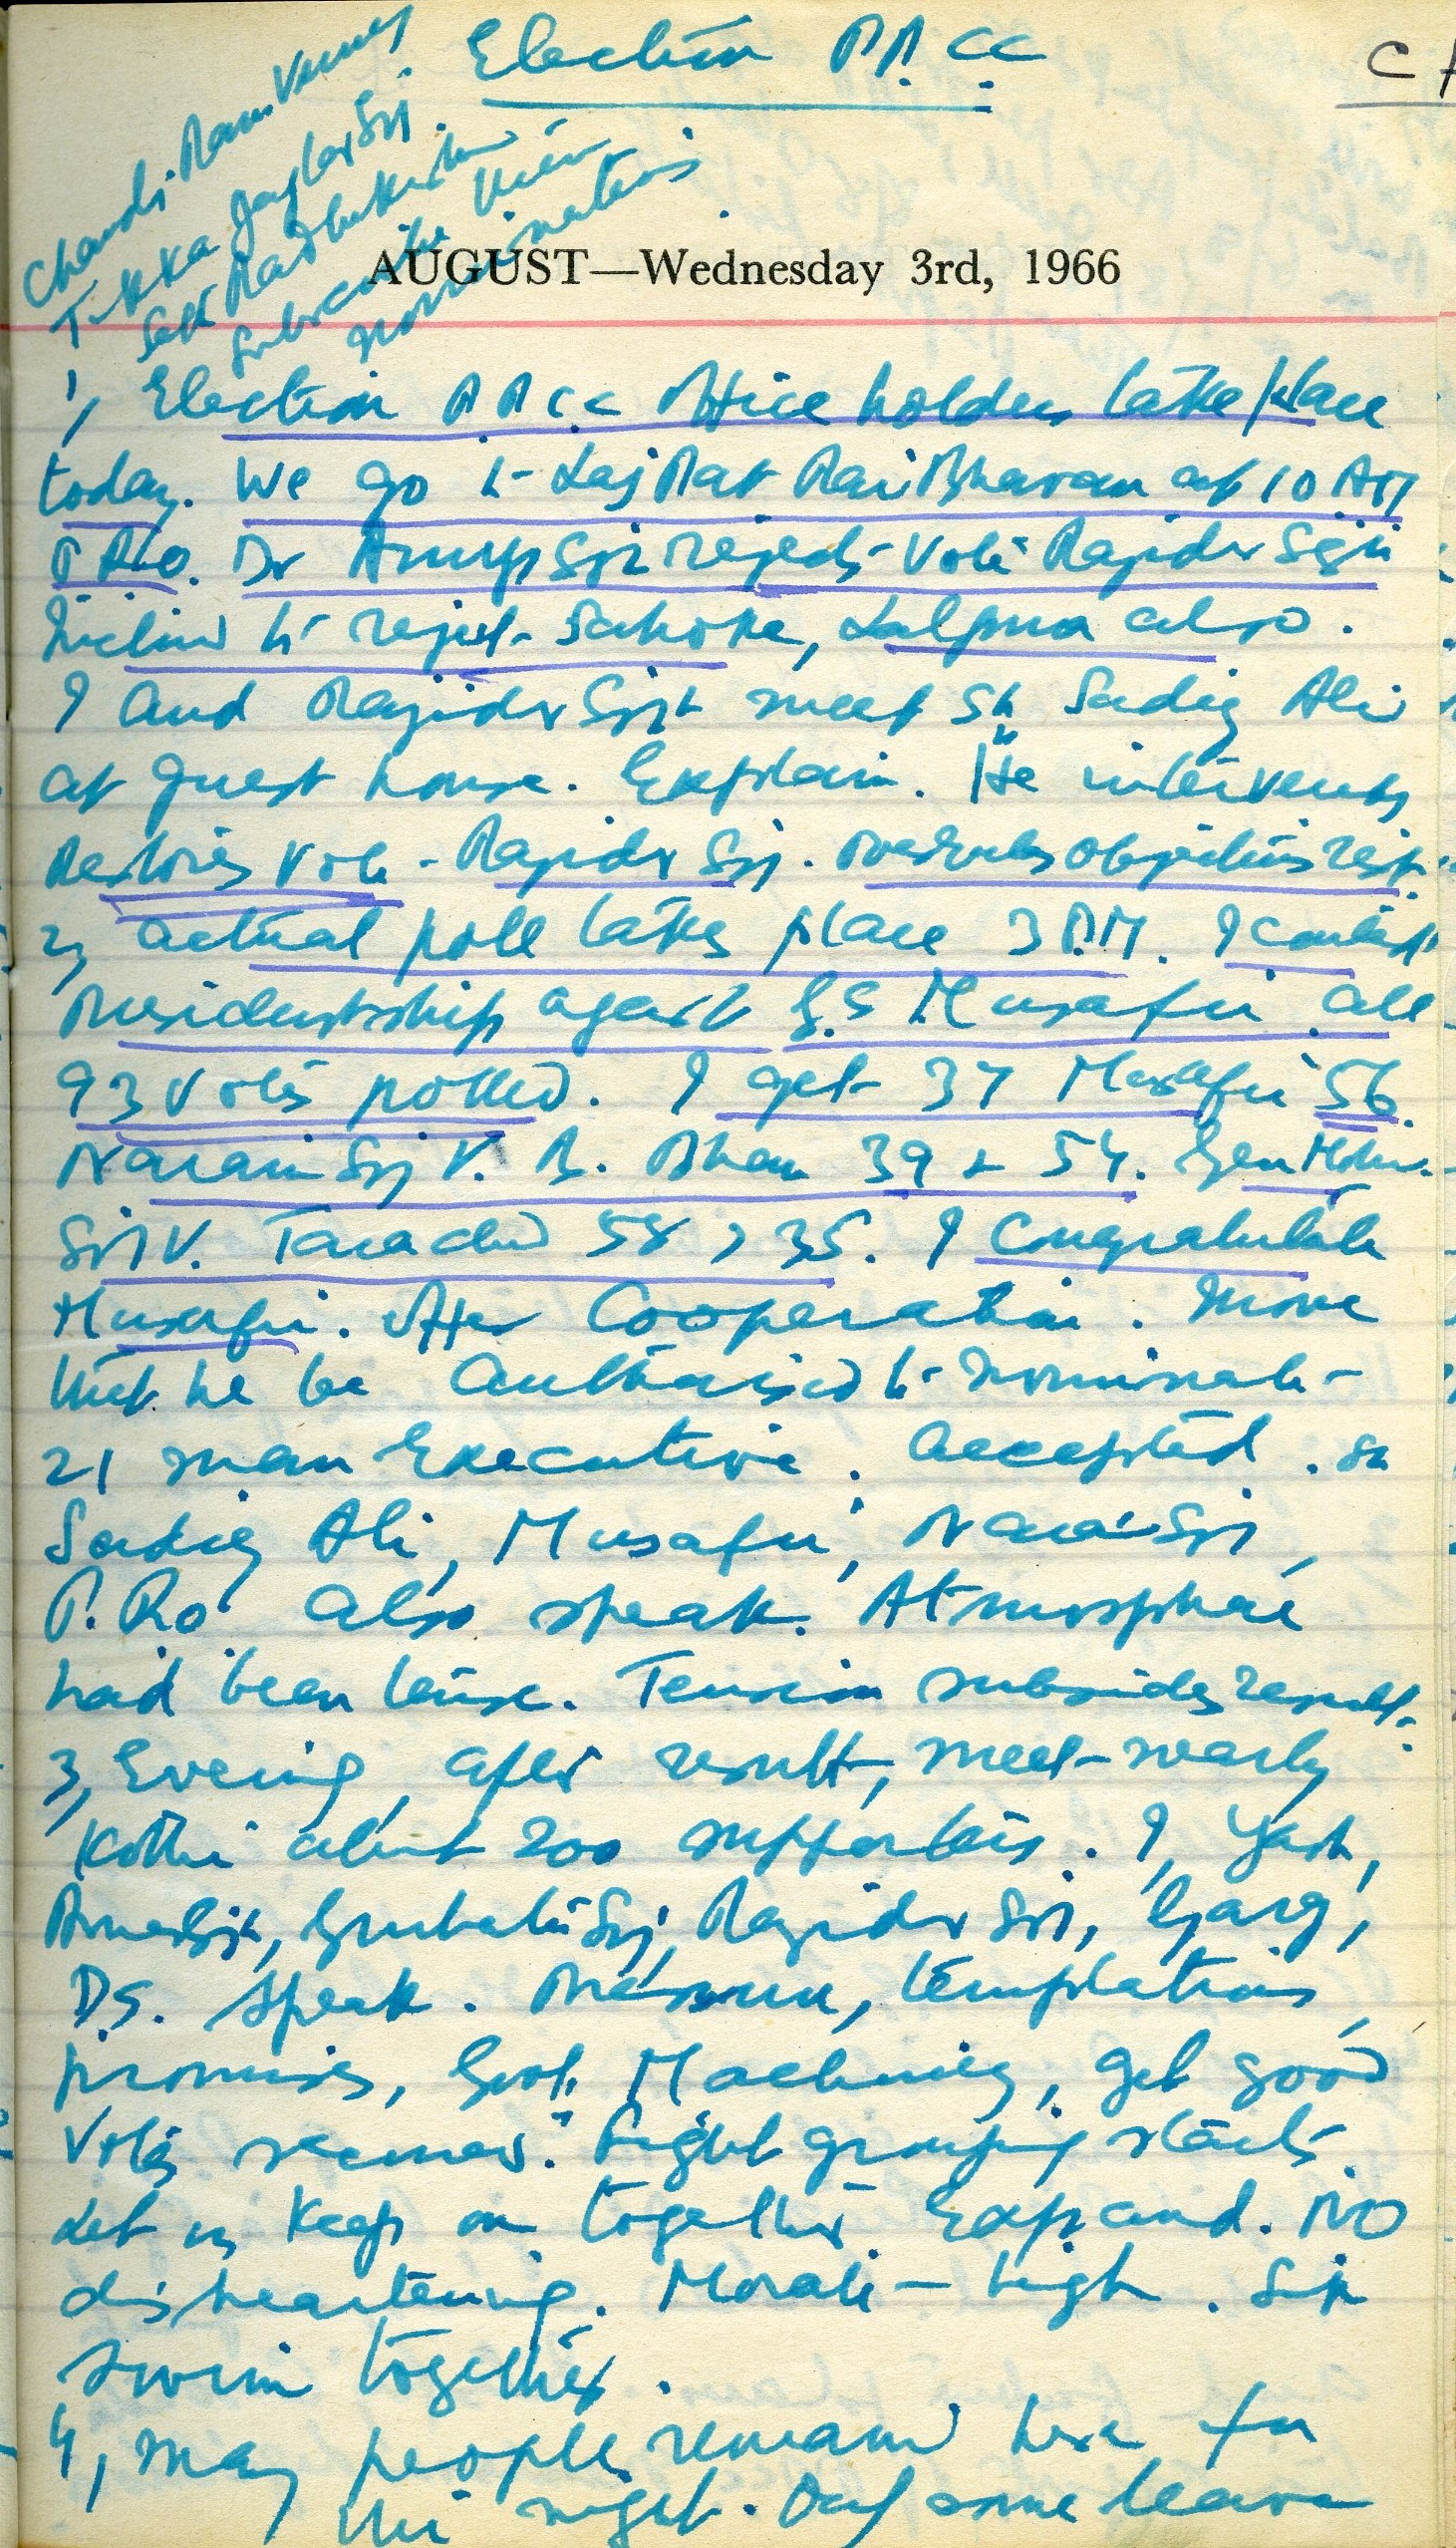 Election P.P.CC
C
Chandi Ram Verma
Tikka Jagjit Sg.
Seth Radhakishan
Subscribe their
nominations
AUGUST—Wednesday 3rd, 1966
1, Election P.P.C.C office holders take place
today. We go to Lajpat Rai Bhavan at 10 AM
P.R.O. Dr Anup Sgh rejects vote Rajinder Sgh
inclined to reject Sahoke, Lalpura also.
I and Rajinder Sgh meet Sh Sadiq Ali
at guest house. Explain. He intervenes
Restores vote - Rajinder Sg. overrules objections rest.
2, actual poll takes place 3 P.M. I contest
Presidentship against G.S Musafir. all
93 votes polled. I get 37 Musafir 56.
Narain Sg V. B. Bhan 39 & 54. Gen Mohan
Sg V. Tarachand 58 > 35. I congratulate
Musafir. offer cooperation. Move
that he be authorised to nominate
21 man Executive. accepted. Sh
Sadiq Ali, Musafir, Narain Sg,
P.Ro also speak. Atmosphere
had been tense. Tension subsides result.
3, Evening after result, meet nearby
Kothi about 200 supporters. I, Yash,
Amar Sgh, Gurbanta Sg, Rajinder Sg, Garg,
D.S. speak. Pressure, temptations,
promises, Govt. Machinery, get good
votes secured. Fight grouping starts.
Let us keep on together. Expand. No
disheartening. Morale — high. Sink
swim together.
4, Many people remained here for
the night. Only some leave